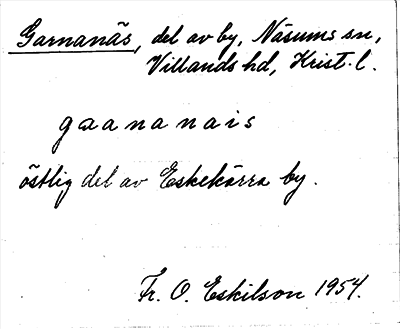 Garnanäs, del av by, Näsums sn,
Villands hd, Krist. l.
gaananais
östlig del av Eskekärra by.
Fr. O. Eskilson 1954.